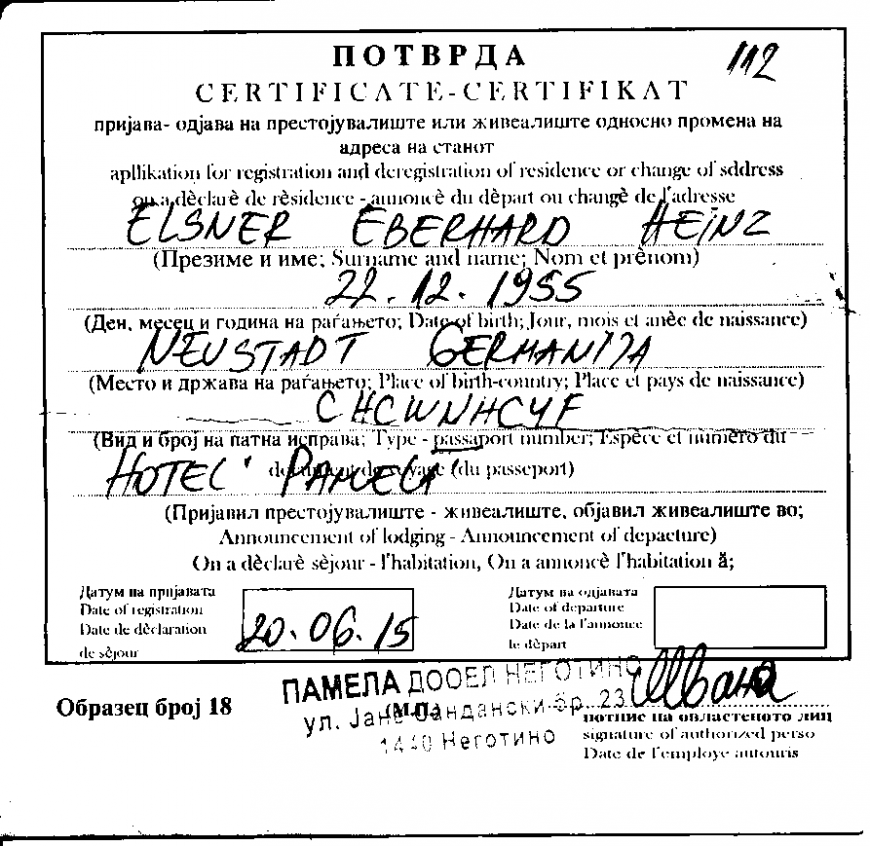 ПОТВРДА
112
CERTIFICATE-CERTIFIKAT
пријава- одјава на престојувалиште или живеалиште односно промена на
адреса на станот
apllikation for registration and deregistration of residence or change of sddress
on a dèclarè de rèsidence - annoncè du dèpart ou changè de l'adresse
ELSNER EBERHARD HEINZ
(Презиме и име; Surname and name; Nom et prênom)
22.12.1955
(Ден, месец и година на раѓањето; Date of birth; Jour, mois et anèe de naissance)
NEUSTADT GERMANIJA
(Место и држава на раѓањето; Place of birth-country; Place et pays de naissance)
CHCWNHCYF
(Вид и број на патна исправа; Type - passaport number; Espèce et numèro du
document de voyage (du passeport)
HOTEL "PAMELA"
(Пријавил престојувалиште - живеалиште, објавил живеалиште во;
Announcement of lodging - Announcement of depacture)
On a dèclarè sèjour - l'habitation, On a annoncè l'habitation ă;
Датум на пријавата
Date of registration
Date de dèclaration
de sèjour
20.06.15
Датум на одјавата
Date of departure
Date de la l'annonce
le dèpart
Образец број 18
ПАМЕЛА ДООЕЛ НЕГОТИНО
(М.П.)
ул. Јане Сандански бр. 23
1440 Неготино
потпис на овластеното лиц
signature of authorized perso
Date de l'employe autouris